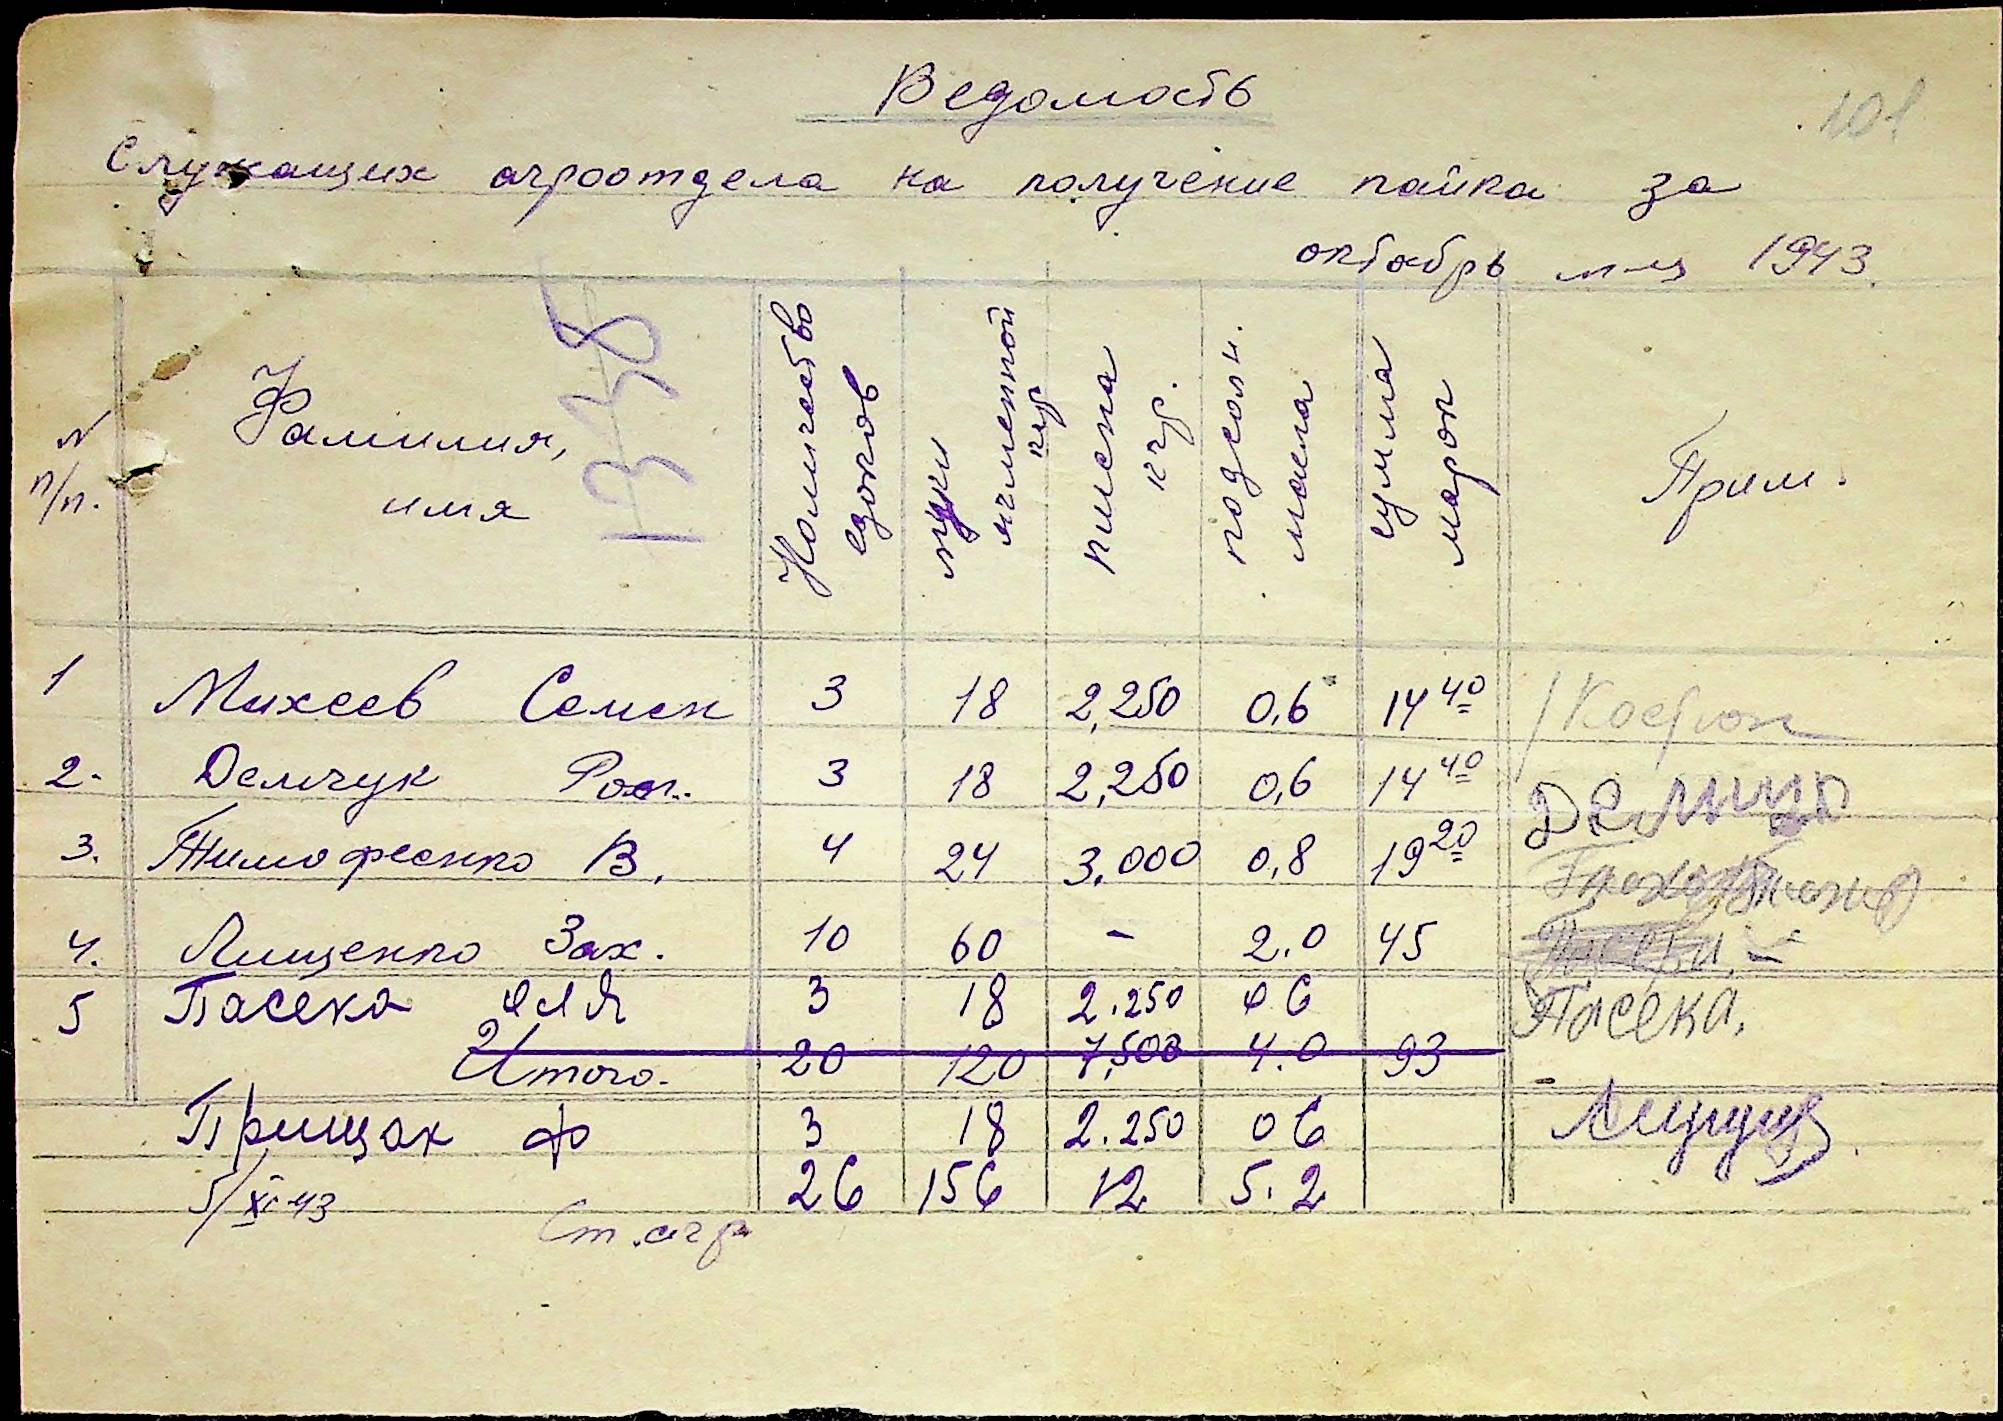 101
Ведомость
Служащих агроотдела на получение пайка за
октябрь м-ц 1943.
1338
N п/п.
Фамилия, имя
Количество едоков
муки ячменной кгр
пшена кгр.
подсолн. масла
сумма марок
Прим.
1 Михеев Семен 3 18 2,250 0,6 14 40
2. Демчук 3 18 2,250 0,6 14 40
3. Тимофеенко В. 4 24 3.000 0,8 19 20
4. Лищенко Зах. 10 60 - 2.0 45
5 Пасека 3 18 2.250 0 6 Пасека.
Итого. 20 120 7,500 4.0 93
Прищак Ф 3 18 2.250 0 6
26 156 12 5.2
5/XI 43 Ст. агр